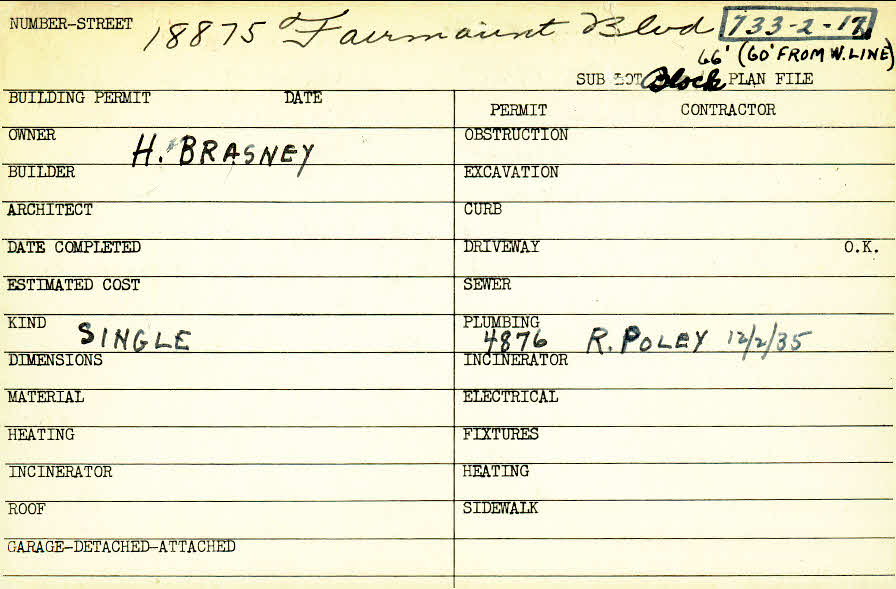 NUMBER-STREET 18875 Fairmount Blvd 733-2-17
66' (60' FROM W. LINE)
SUB LOT Block PLAN FILE
BUILDING PERMIT DATE
PERMIT CONTRACTOR
OWNER H. BRASNEY
OBSTRUCTION
BUILDER
EXCAVATION
ARCHITECT
CURB
DATE COMPLETED
DRIVEWAY O.K.
ESTIMATED COST
SEWER
KIND SINGLE
PLUMBING
4876 R. POLEY 12/2/35
DIMENSIONS
INCINERATOR
MATERIAL
ELECTRICAL
HEATING
FIXTURES
INCINERATOR
HEATING
ROOF
SIDEWALK
GARAGE-DETACHED-ATTACHED